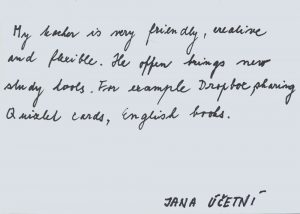 My teacher is very friendly, creative
and flexible. He offen brings new
study tools. For example Dropbox sharing
Quizlet cards, English books.
JANA ÚČETNÍ